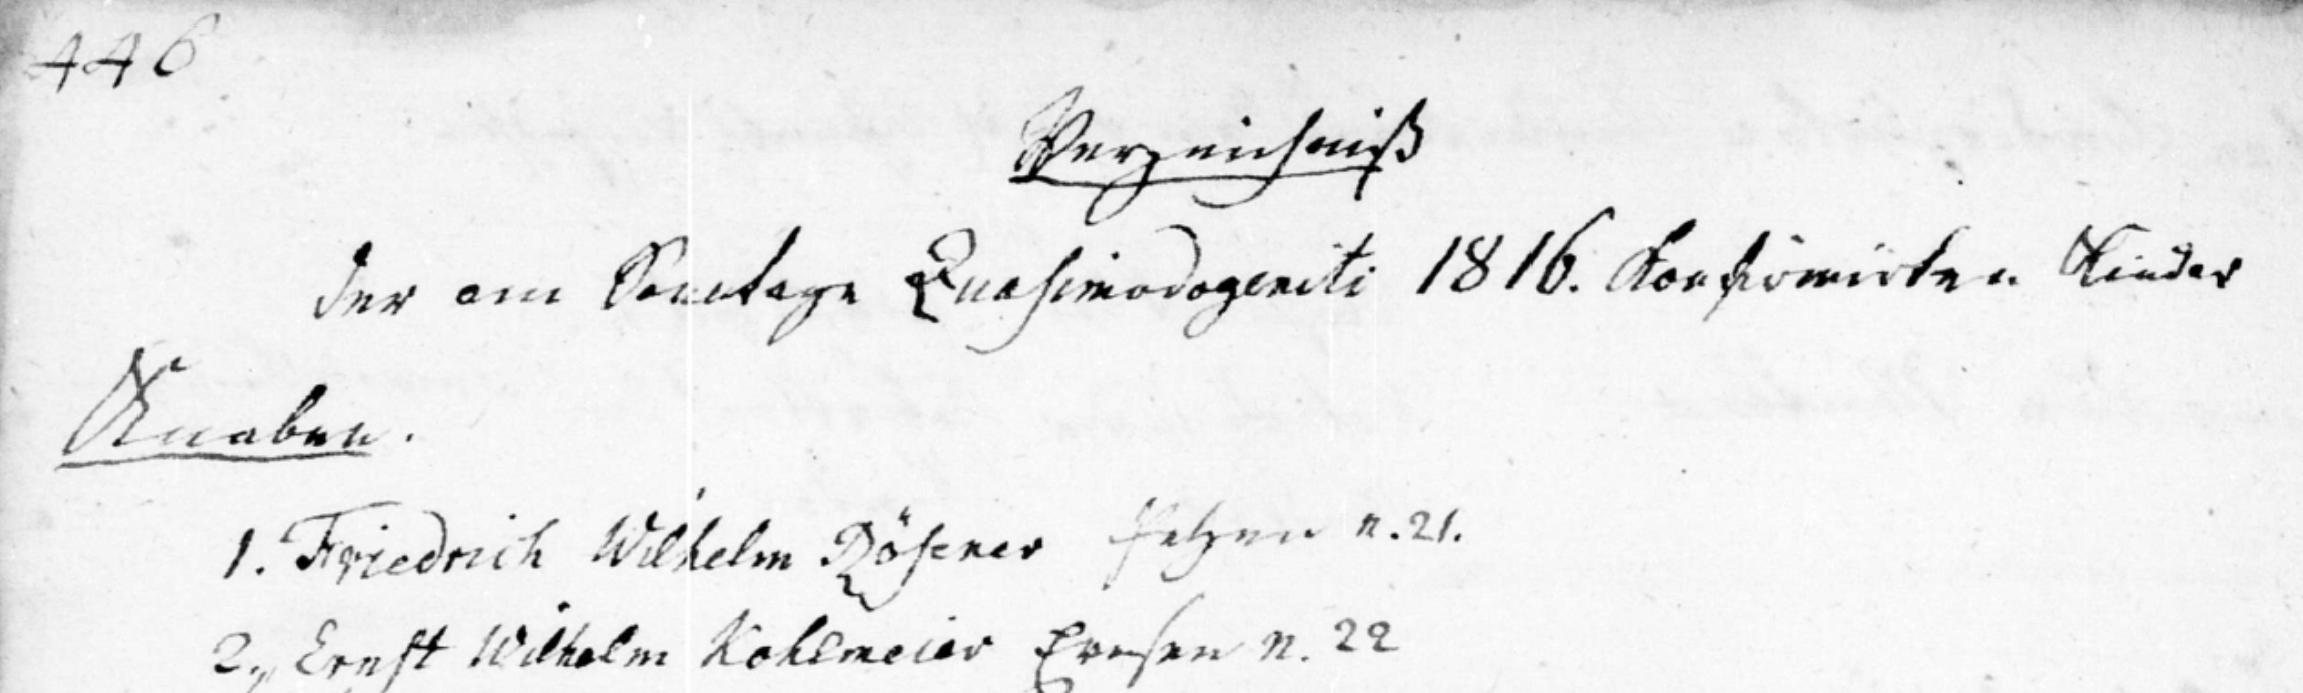 446
Verzeichniß
der am Sontage Quasimodogeniti 1816. Konfirmirten Kinder
Knaben.
1. Friedrich Wilhelm Rösener n. 21.
2., Ernst Wilhelm Kohlmeier n. 22